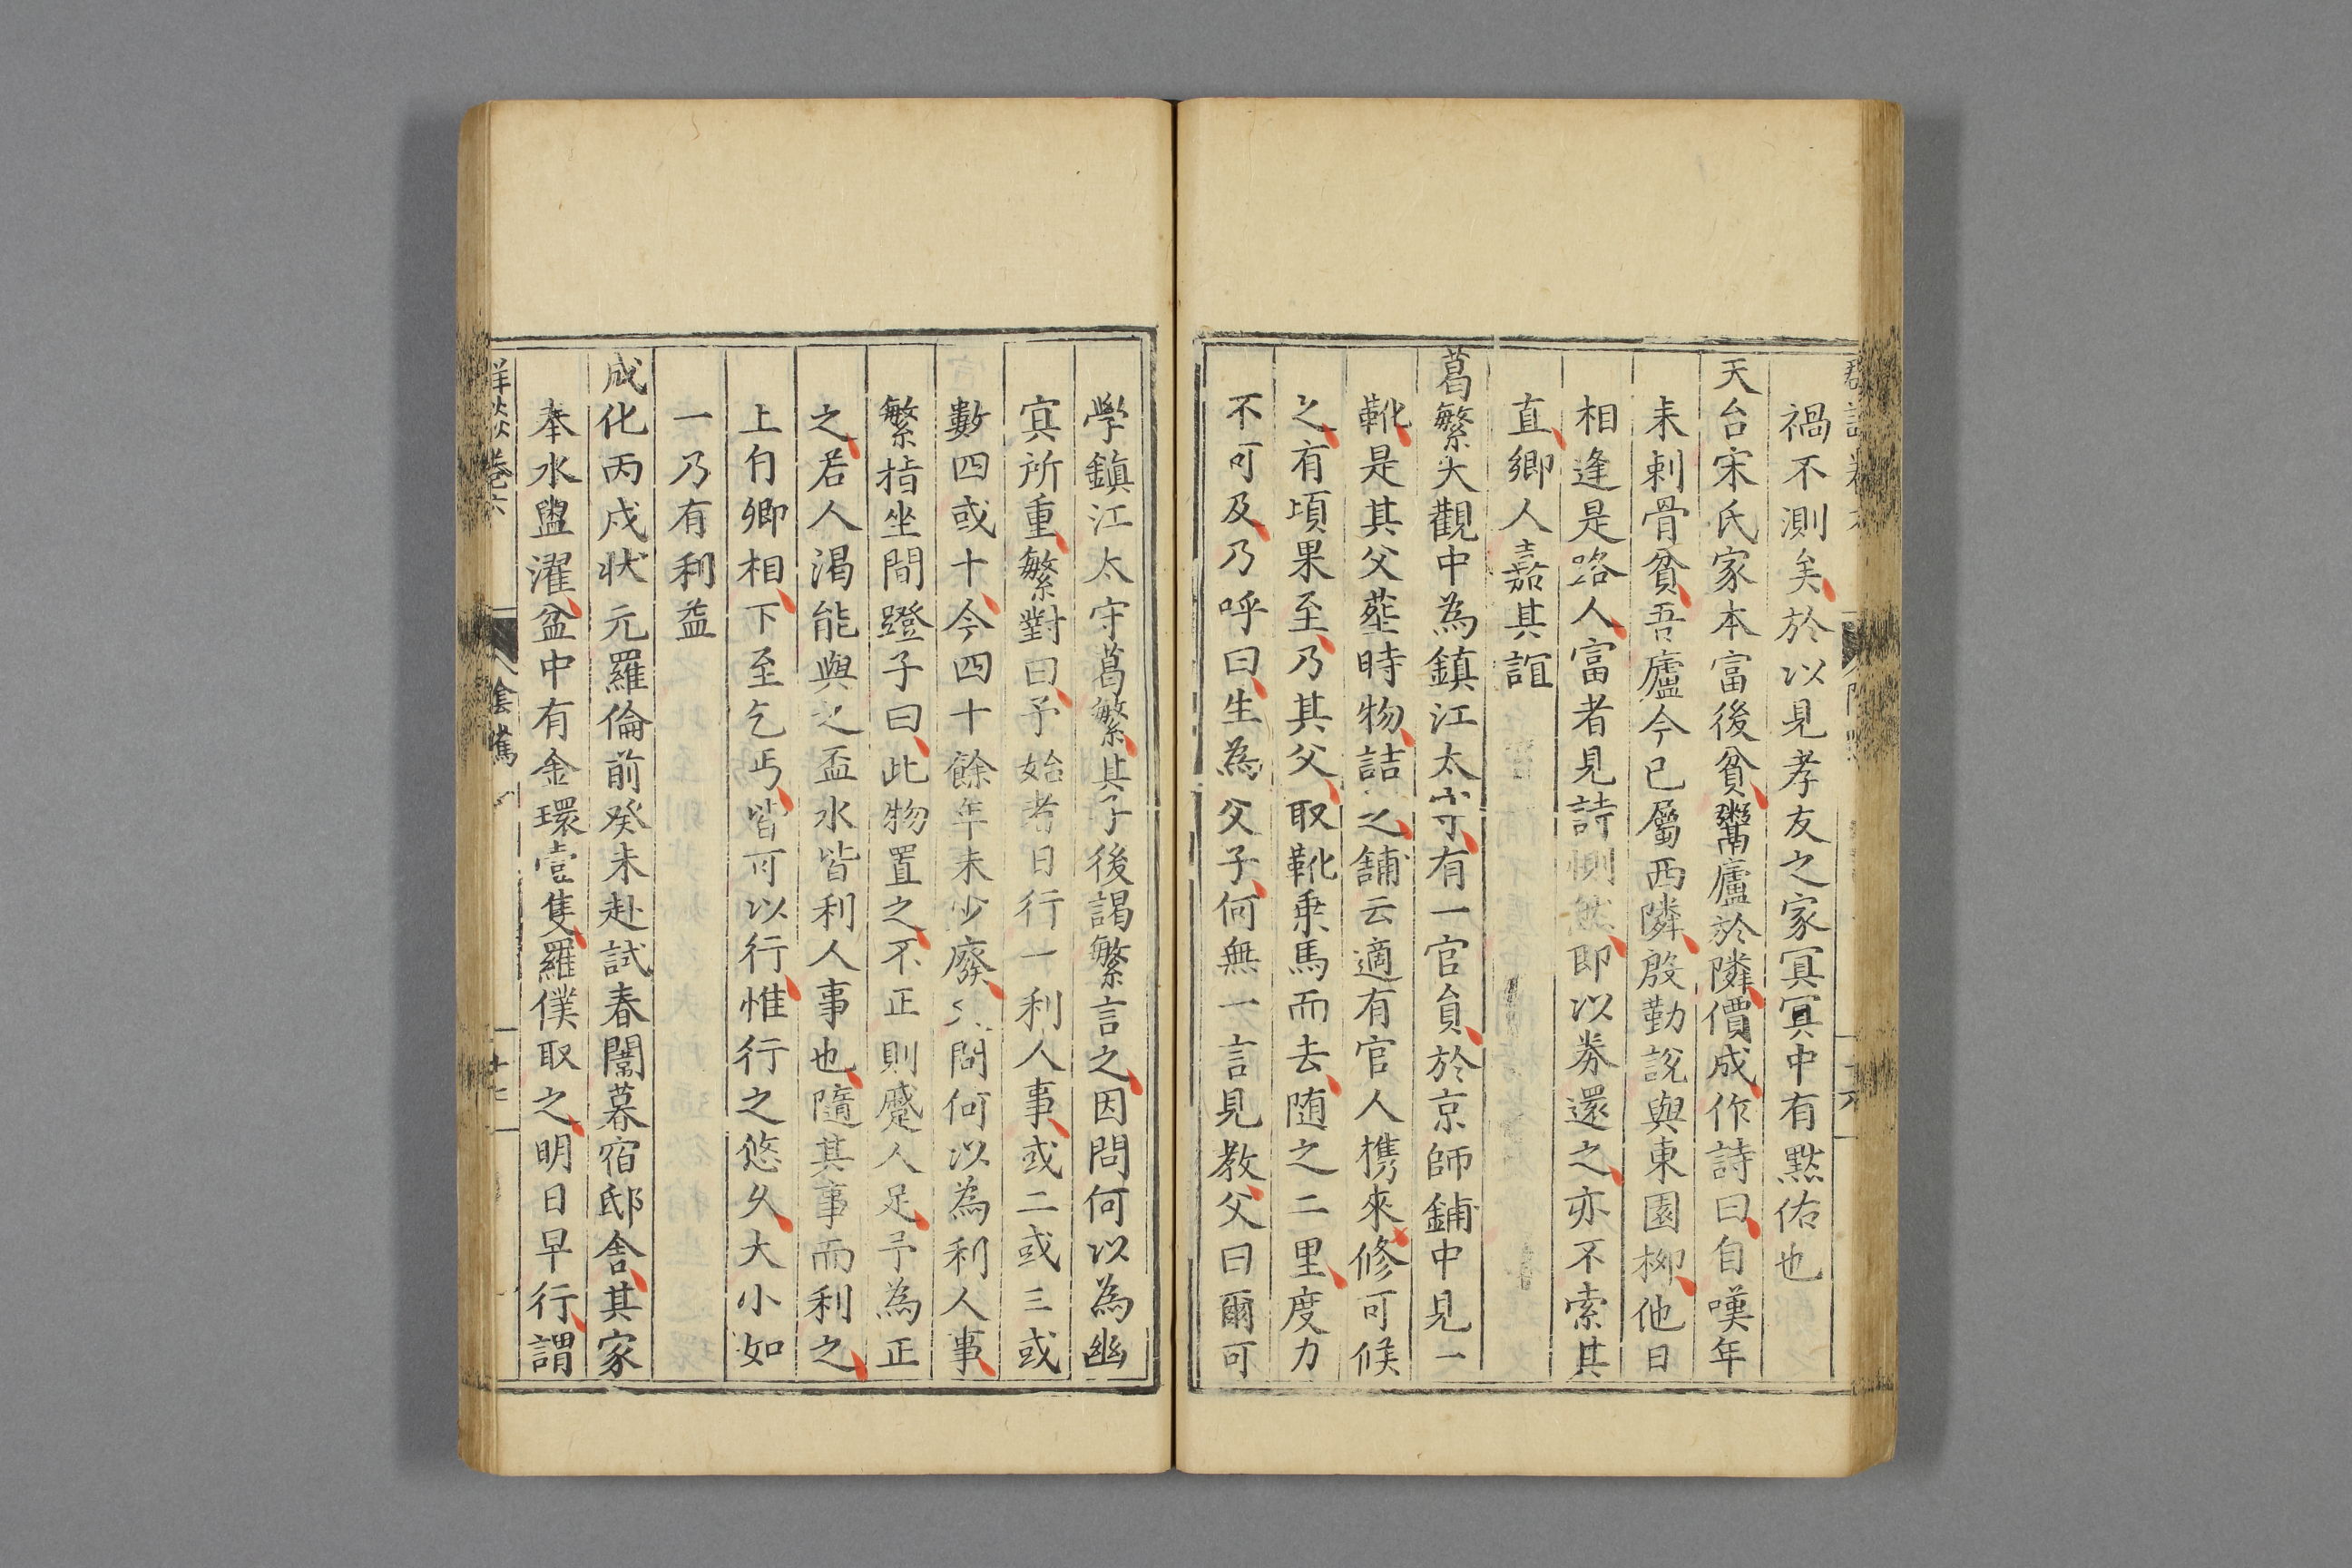 禍不測矣於以見孝友之家冥冥中有黙佑也
天台宋氏家本富後貧鬻廬於隣價成作詩曰自嘆年
来剌骨貧吾廬今已屬西隣殷勤説與東園柳他日
相逢是路人富者見詩惻然即以券還之亦不索其
直鄉人嘉其誼
葛繁大觀中為鎮江太守有一官貟於京師鋪中見一
靴是其父塟時物詰之鋪云適有官人携來修可候
之有頃果至乃其父取靴乗馬而去随之二里度力
不可及乃呼曰生為父子何無一言見教父曰爾可
學鎮江太守葛繁其子後謁繁言之因問何以為幽
冥所重繁對曰予始者日行一利人事或二或三或
數四或十今四十餘年未少廢又問何以為利人事
繁指坐間蹬子曰此物置之不正則蹙人足予為正
之若人渴能與之盃水皆利人事也隨其事而利之
上自卿相下至乞丐皆可以行惟行之悠久大小如
一乃有利益
成化丙戍状元羅倫前癸未赴試春闈暮宿邸舎其家
奉水盥濯盆中有金環壹隻羅僕取之明日早行謂
卷六
陰騭
十七